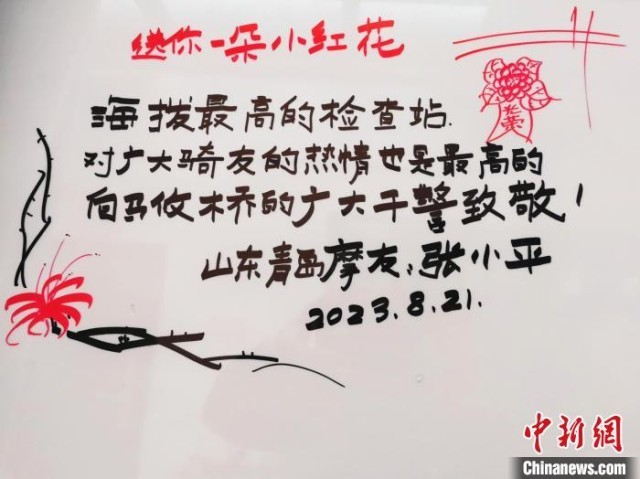 送你一朵小红花
海拔最高的检查站.
对广大骑友的热情也是最高的
向马攸木桥的广大干警致敬!
山东青岛摩友:张小平
2023.8.21.
中新网
Chinanews.com